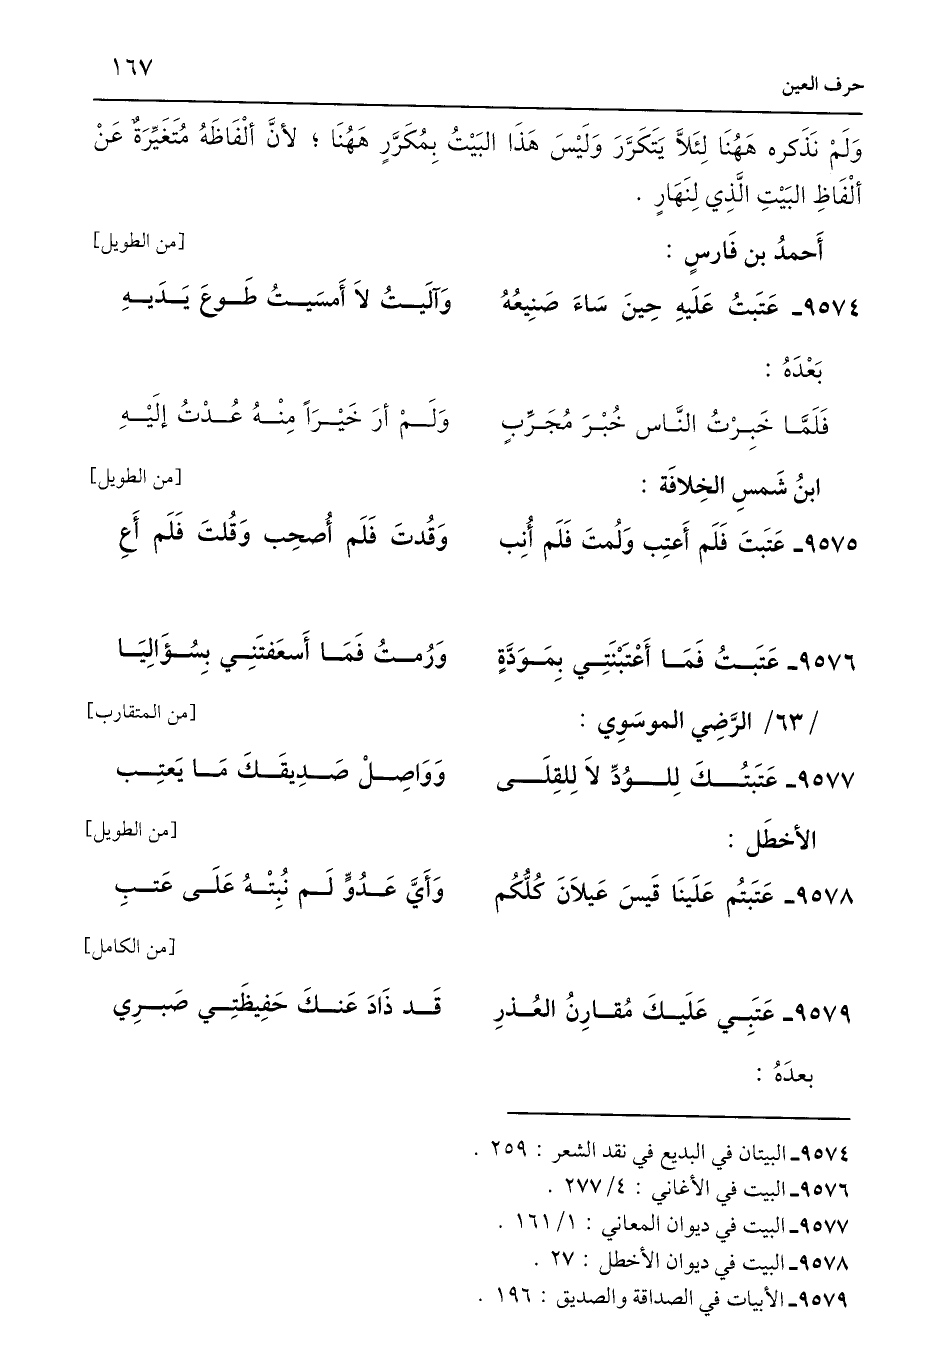 حرف العين ١٦٧
وَلَمْ نَذكره هَهُنَا لِئَلاَّ يَتَكَرَّرَ وَلَيْسَ هَذَا البَيْتُ بِمُكَرَّرٍ هَهُنَا ؛ لأنَّ ألْفَاظَهُ مُتَغَيِّرَةٌ عَنْ
ألْفَاظِ البَيْتِ الَّذِي لِنَهَارٍ .
أَحمدُ بن فَارسٍ : [من الطويل]
٩٥٧٤ـ عَتَبتُ عَلَيهِ حِينَ سَاءَ صَنِيعُهُ وَآلَيتُ لاَ أَمسَيتُ طَوعَ يَدَيهِ
بَعْدَهُ :
فَلَمَّا خَبِرْتُ النَّاس خُبْرَ مُجَرِّبٍ وَلَمْ أرَ خَيْرَاً مِنْهُ عُدْتُ إلَيْهِ
ابنُ شَمسِ الخِلافَة : [من الطويل]
٩٥٧٥ـ عَتَبتَ فَلَم أَعتِب وَلُمتَ فَلَم أُنِب وَقُدتَ فَلَم أُصحِب وَقُلتَ فَلَم أَعِ
٩٥٧٦ـ عَتَبتُ فَمَا أَعْتَبْنَتِي بِمَوَدَّةٍ وَرُمتُ فَمَا أَسعَفتَنِي بِسُؤَالِيَا
/٦٣/ الرَّضِي الموسَوِي : [من المتقارب]
٩٥٧٧ـ عَتَبتُكَ لِلوُدِّ لاَ لِلقِلَى وَوَاصِلْ صَدِيقَكَ مَا يَعتِب
الأخطَل : [من الطويل]
٩٥٧٨ـ عَتَبتُم عَلَينَا قَيسَ عَيلاَنَ كُلُّكُم وَأَيَّ عَدُوٍّ لَم نُبِتْهُ عَلَى عَتبِ
[من الكامل]
٩٥٧٩ـ عَتَبِي عَلَيكَ مُقارِنُ العُذرِ قَد ذَادَ عَنكَ حَفِيظَتِي صَبرِي
بعدَهُ :
٩٥٧٤ـ البيتان في البديع في نقد الشعر : ٢٥٩ .
٩٥٧٦ـ البيت في الأغاني : ٤/ ٢٧٧ .
٩٥٧٧ـ البيت في ديوان المعاني : ١/ ١٦١ .
٩٥٧٨ـ البيت في ديوان الأخطل : ٢٧ .
٩٥٧٩ـ الأبيات في الصداقة والصديق : ١٩٦ .